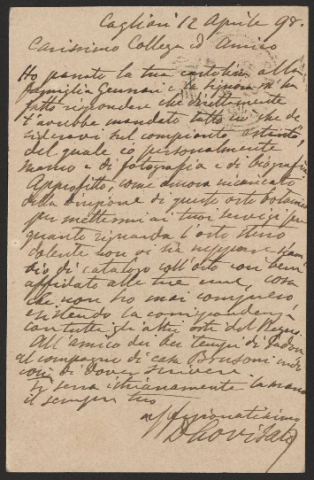 Cagliari 12 Aprile 98.
Carissimo Collega ed Amico
Ho passato la tua cartolina alla
famiglia Gennari e la Signora m'ha
fatto rispondere che direttamente
t'avrebbe mandato tutto ciò che de
sideravi sul compianto estinto,
del quale io personalmente
manco e di fotografia e di biografia
Approfitto, come ancora incaricato
della direzione di questo orto botanico
per mettermi ai tuoi servizi per
quanto riguarda l'orto. Sono
dolente non vi sia neppure
di catalogo coll'orto con ben
affidato alle tue cure, cosa
che non ho mai compreso
esistendo la corrispondenza
con tutti gli altri orti del Regno.
All'amico dei bei tempi di Padova
al compagno di casa Bonsoni
di dover scrivere
Ti serra la mano
il sempre tuo
affezionatissimo
D Lovisato